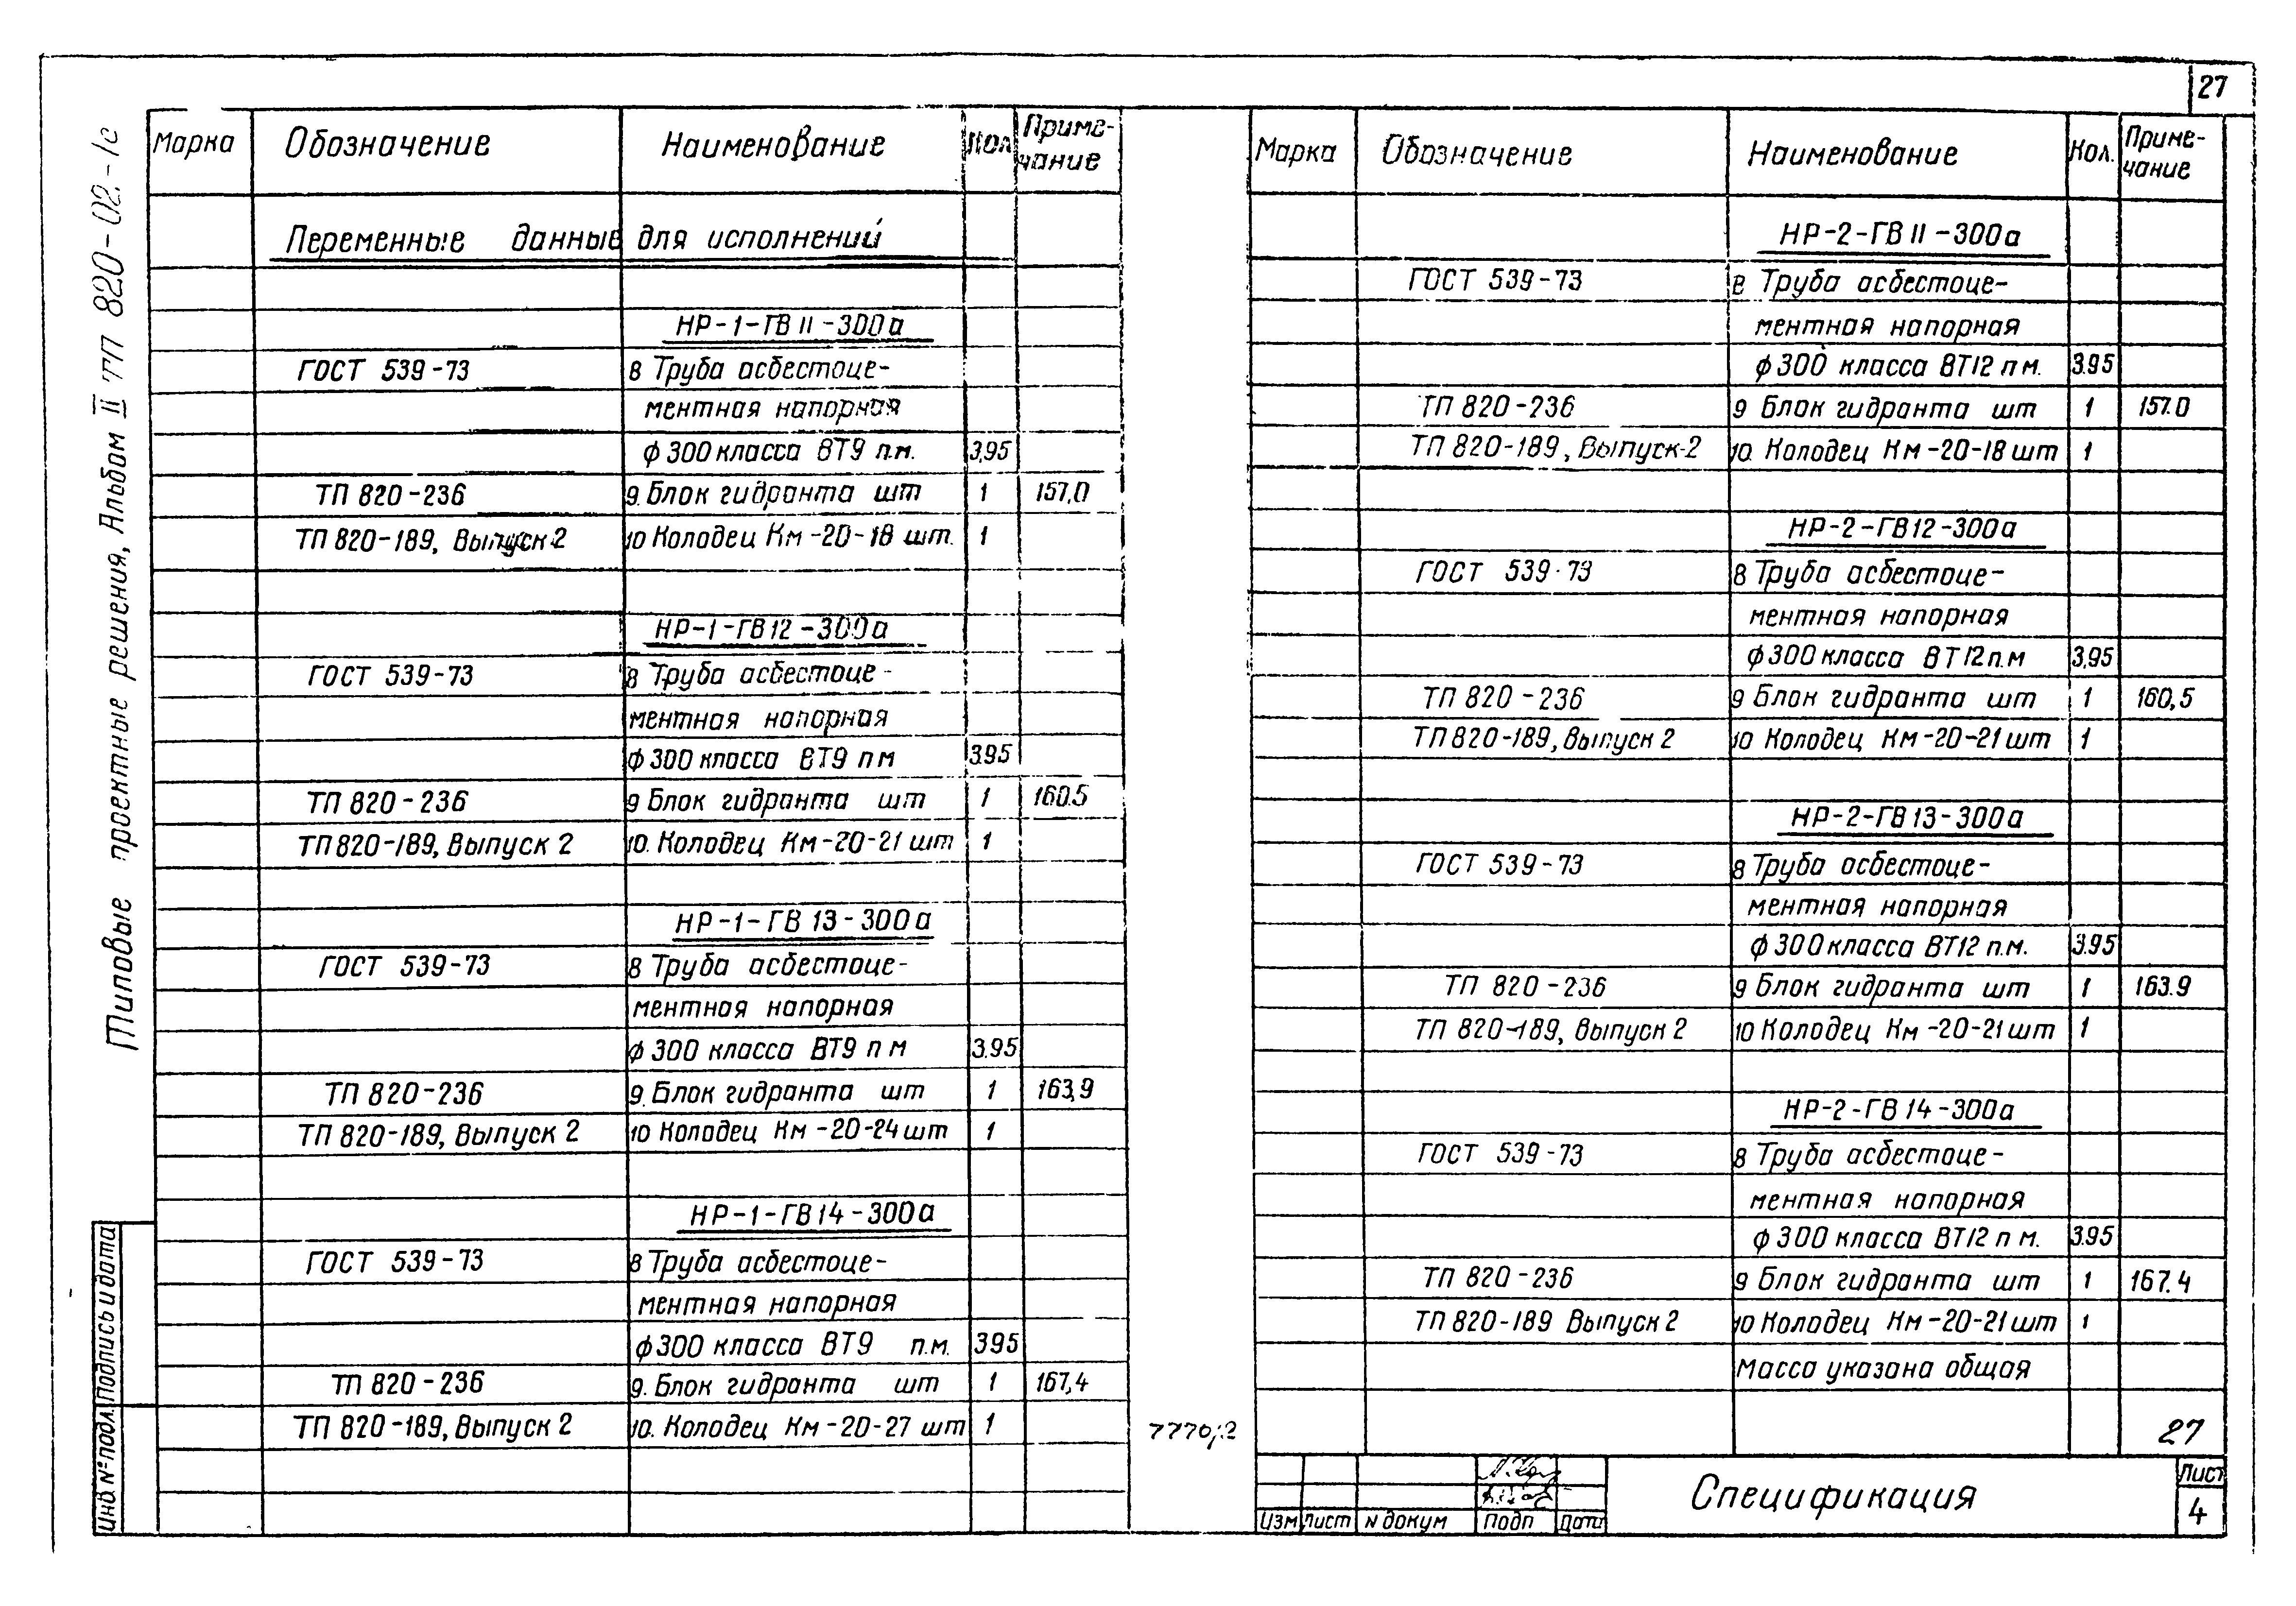 27
Типовые проектные решения, Альбом II ТП 820-02.-1с
Марка Обозначение Наименование Кол Приме-
чание
Переменные данные для исполнений
НР-1-ГВ11-300а
ГОСТ 539-73 8 Труба асбестоце-
ментная напорная
ф300 класса ВТ9 п.м. 3,95
ТП 820-236 9. Блок гидранта шт 1 157,0
ТП 820-189, Выпуск 2 10 Колодец Км-20-18 шт. 1
НР-1-ГВ12-300а
ГОСТ 539-73 8 Труба асбестоце-
ментная напорная
ф300 класса ВТ9 пм 3.95
ТП 820-236 9 Блок гидранта шт 1 160.5
ТП 820-189, Выпуск 2 10. Колодец Км-20-21 шт 1
НР-1-ГВ13-300а
ГОСТ 539-73 8 Труба асбестоце-
ментная напорная
ф300 класса ВТ9 пм 3.95
ТП 820-236 9. Блок гидранта шт 1 163,9
ТП 820-189, Выпуск 2 10 Колодец Км-20-24 шт 1
НР-1-ГВ14-300а
ГОСТ 539-73 8 Труба асбестоце-
ментная напорная
ф300 класса ВТ9 п.м. 3.95
ТП 820-236 9. Блок гидранта шт 1 167,4
ТП 820-189, Выпуск 2 10. Колодец Км-20-27 шт 1
Марка Обозначение Наименование Кол. Приме-
чание
НР-2-ГВ11-300а
ГОСТ 539-73 8 Труба асбестоце-
ментная напорная
ф300 класса ВТ12 пм. 3.95
ТП 820-236 9 Блок гидранта шт 1 157.0
ТП 820-189, Выпуск-2 10. Колодец Км-20-18 шт 1
НР-2-ГВ12-300а
ГОСТ 539-73 8 Труба асбестоце-
ментная напорная
ф300 класса ВТ12 п.м 3,95
ТП 820-236 9 Блок гидранта шт 1 160,5
ТП 820-189, Выпуск 2 10 Колодец Км-20-21 шт 1
НР-2-ГВ13-300а
ГОСТ 539-73 8 Труба асбестоце-
ментная напорная
ф300 класса ВТ12 п.м. 3.95
ТП 820-236 9 Блок гидранта шт 1 163.9
ТП 820-189, Выпуск 2 10 Колодец Км-20-21 шт 1
НР-2-ГВ14-300а
ГОСТ 539-73 8 Труба асбестоце-
ментная напорная
ф300 класса ВТ12 п м. 3.95
ТП 820-236 9 Блок гидранта шт 1 167.4
ТП 820-189 Выпуск 2 10 Колодец Км-20-21 шт 1
Масса указана общая
27
Изм Лист N докум Подп Дата
Спецификация
Лист
4
Инв № подл. Подпись и дата